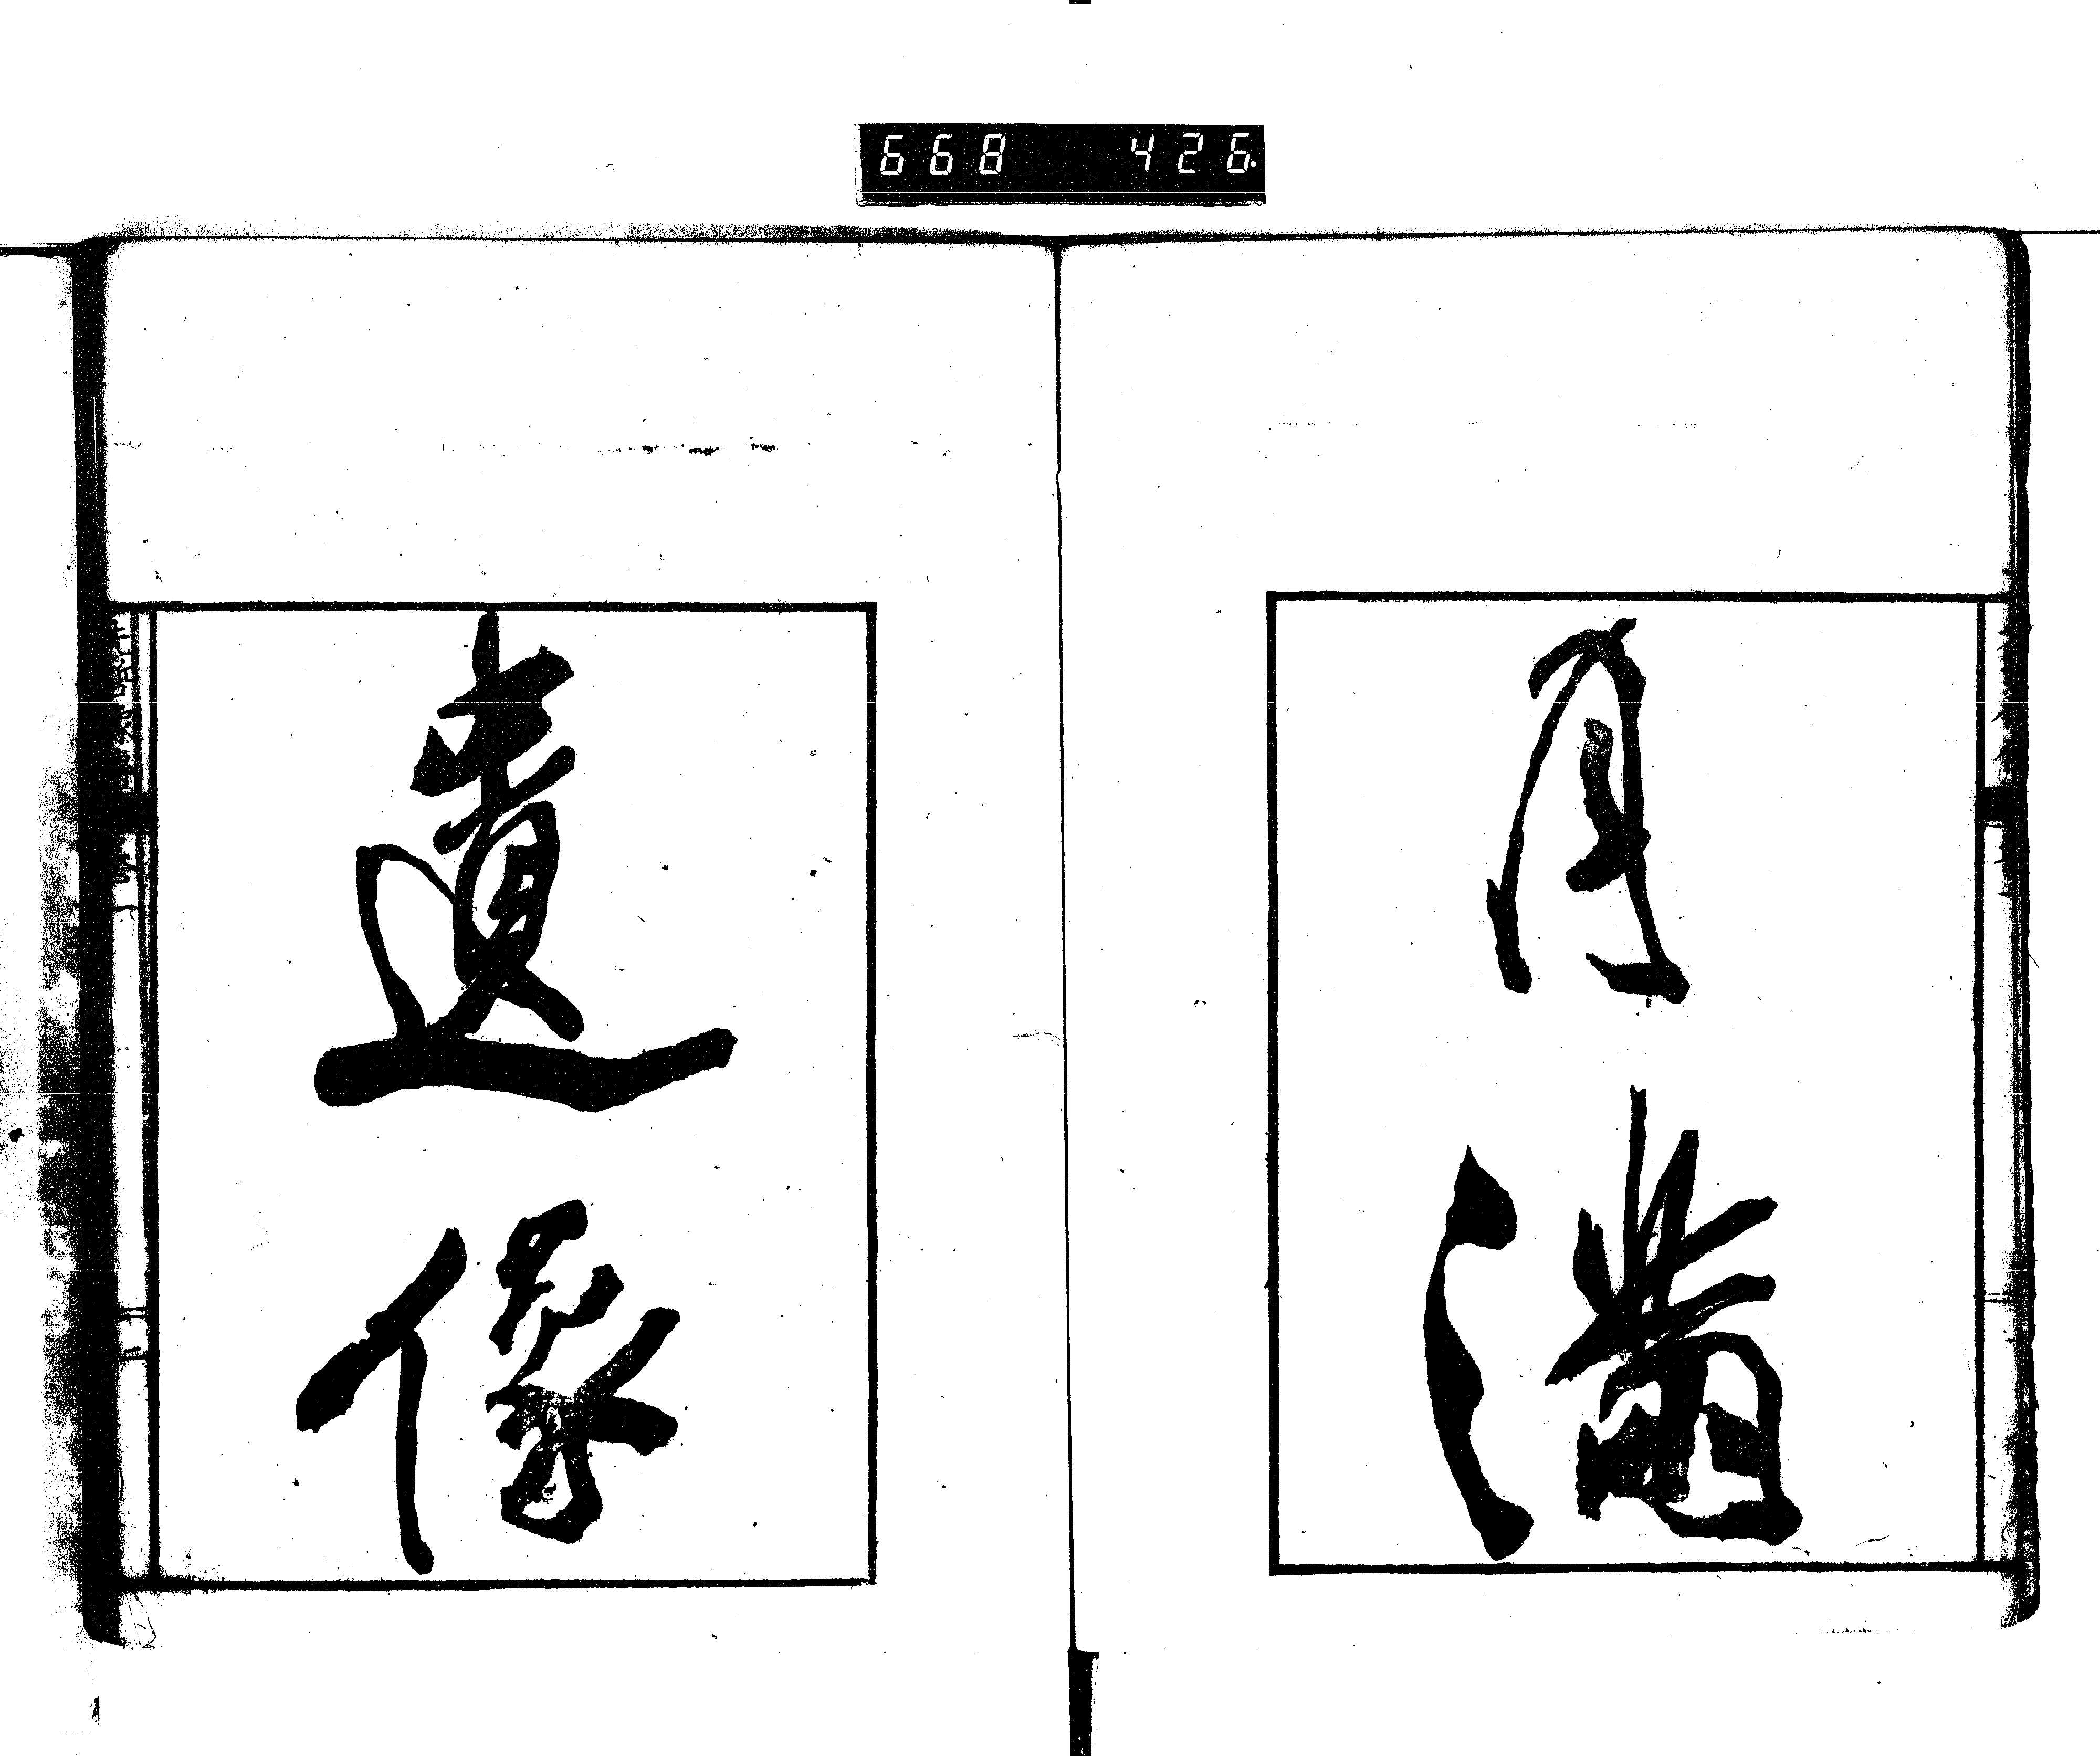 668 426
月滿
遺像